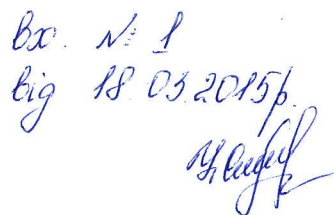 вх. № 1
від 18.03.2015р.